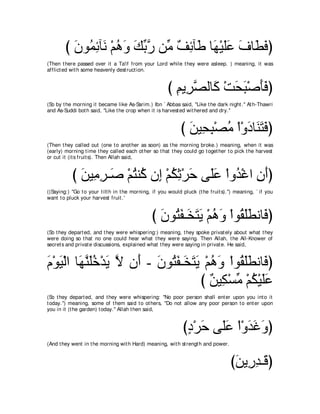 ﴿فَطَافَ عَلَيْهَا طَآئِفٌ مِّن رَّبِّكَ وَهُمْ نَآئِمُونَ ﴾
(Then there passed over it a Ta'if from your Lord while they were asleep. ) meaning, it was
afflicted with some heavenly destruction.
﴿فَأَصْبَحَتْ كَالصَّرِيمِ ﴾
(So by the morning it became like As-Sarim.) Ibn ` Abbas said, "Like the dark night." Ath-Thawri
and As-Suddi both said, "Like the crop when it is harvested withered and dry."
﴿فَتَنَادَوْاْ مُصْبِحِينَ ﴾
(Then they called out (one to another as soon) as the morning broke.) meaning, when it was
(early) morning time they called each other so that they could go together to pick the harvest
or cut it (its fruits). Then Allah said,
﴿أَنِ اغْدُواْ عَلَى حَرْثِكُمْ إِن كُنتُمْ صَـرِمِينَ ﴾
((Saying:) "Go to your tilth in the morning, if you would pluck (the fruits).") meaning, ` if you
want to pluck your harvest fruit.'
﴿فَانطَلَقُواْ وَهُمْ يَتَخَـفَتُونَ ﴾
(So they departed, and they were whispering:) meaning, they spoke privately about what they
were doing so that no one could hear what they were saying. Then Allah, the All-Knower of
secrets and private discussions, explained what they were saying in private. He said,
﴿فَانطَلَقُواْ وَهُمْ يَتَخَـفَتُونَ - أَن لاَّ يَدْخُلَنَّهَا الْيَوْمَ
عَلَيْكُمْ مِّسْكِينٌ ﴾
(So they departed, and they were whispering: "No poor person shall enter upon you into it
today.") meaning, some of them said to others, "Do not allow any poor person to enter upon
you in it (the garden) today." Allah then said,
﴿وَغَدَوْاْ عَلَى حَرْدٍ﴾
(And they went in the morning with Hard) meaning, with strength and power.
﴿قَـدِرِينَ﴾